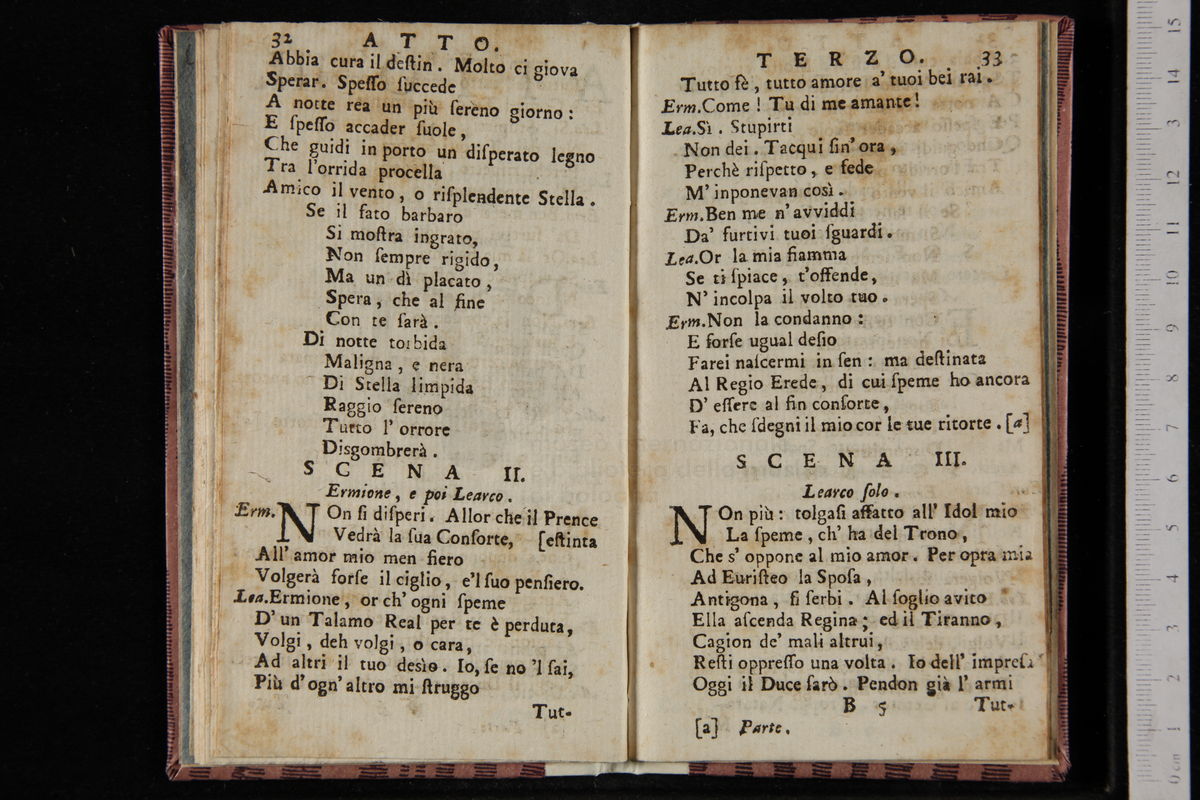 32 ATTO.
Abbia cura il deſtin. Molto ci giova
Sperar. Speſſo ſuccede
A notte rea un più ſereno giorno:
E ſpeſſo accader ſuole,
Che guidi in porto un diſperato legno
Tra l'orrida procella
Amico il vento, o riſplendente Stella.
Se il fato barbaro
Si moſtra ingrato,
Non ſempre rigido,
Ma un dì placato,
Spera, che al fine
Con te ſarà.
Di notte torbida
Maligna, e nera
Di Stella limpida
Raggio ſereno
Tutto l'orrore
Disgombrerà.
SCENA II.
Ermione, e poi Learco.
Erm. NOn ſi diſperi. Allor che il Prence
Vedrà la ſua Conſorte, [eſtinta
All'amor mio men fiero
Volgerà forſe il ciglio, e'l ſuo penſiero.
Lea. Ermione, or ch'ogni ſpeme
D'un Talamo Real per te è perduta,
Volgi, deh volgi, o cara,
Ad altri il tuo desìo. Io, ſe no 'l ſai,
Più d'ogn'altro mi ſtruggo
Tut-
TERZO. 33
Tutto fè, tutto amore a' tuoi bei rai.
Erm. Come! Tu di me amante!
Lea. Sì. Stupirti
Non dei. Tacqui ſin'ora,
Perchè riſpetto, e fede
M'inponevan così.
Erm. Ben me n'avviddi
Da' furtivi tuoi ſguardi.
Lea. Or la mia fiamma
Se ti ſpiace, t'offende,
N'incolpa il volto tuo.
Erm. Non la condanno:
E forſe ugual deſio
Farei naſcermi in ſen: ma deſtinata
Al Regio Erede, di cui ſpeme ho ancora
D'eſſere al fin conſorte,
Fa, che ſdegni il mio cor le tue ritorte. [a]
SCENA III.
Learco ſolo.
NOn più: tolgaſi affatto all'Idol mio
La ſpeme, ch'ha del Trono,
Che s'oppone al mio amor. Per opra mia
Ad Euriſteo la Spoſa,
Antigona, ſi ſerbi. Al ſoglio avito
Ella aſcenda Regina; ed il Tiranno,
Cagion de' mali altrui,
Reſti oppreſſo una volta. Io dell'impreſa
Oggi il Duce ſarò. Pendon già l'armi
B 5 Tut-
[a] Parte.
0 cm 1 2 3 4 5 6 7 8 9 10 11 12 13 14 15